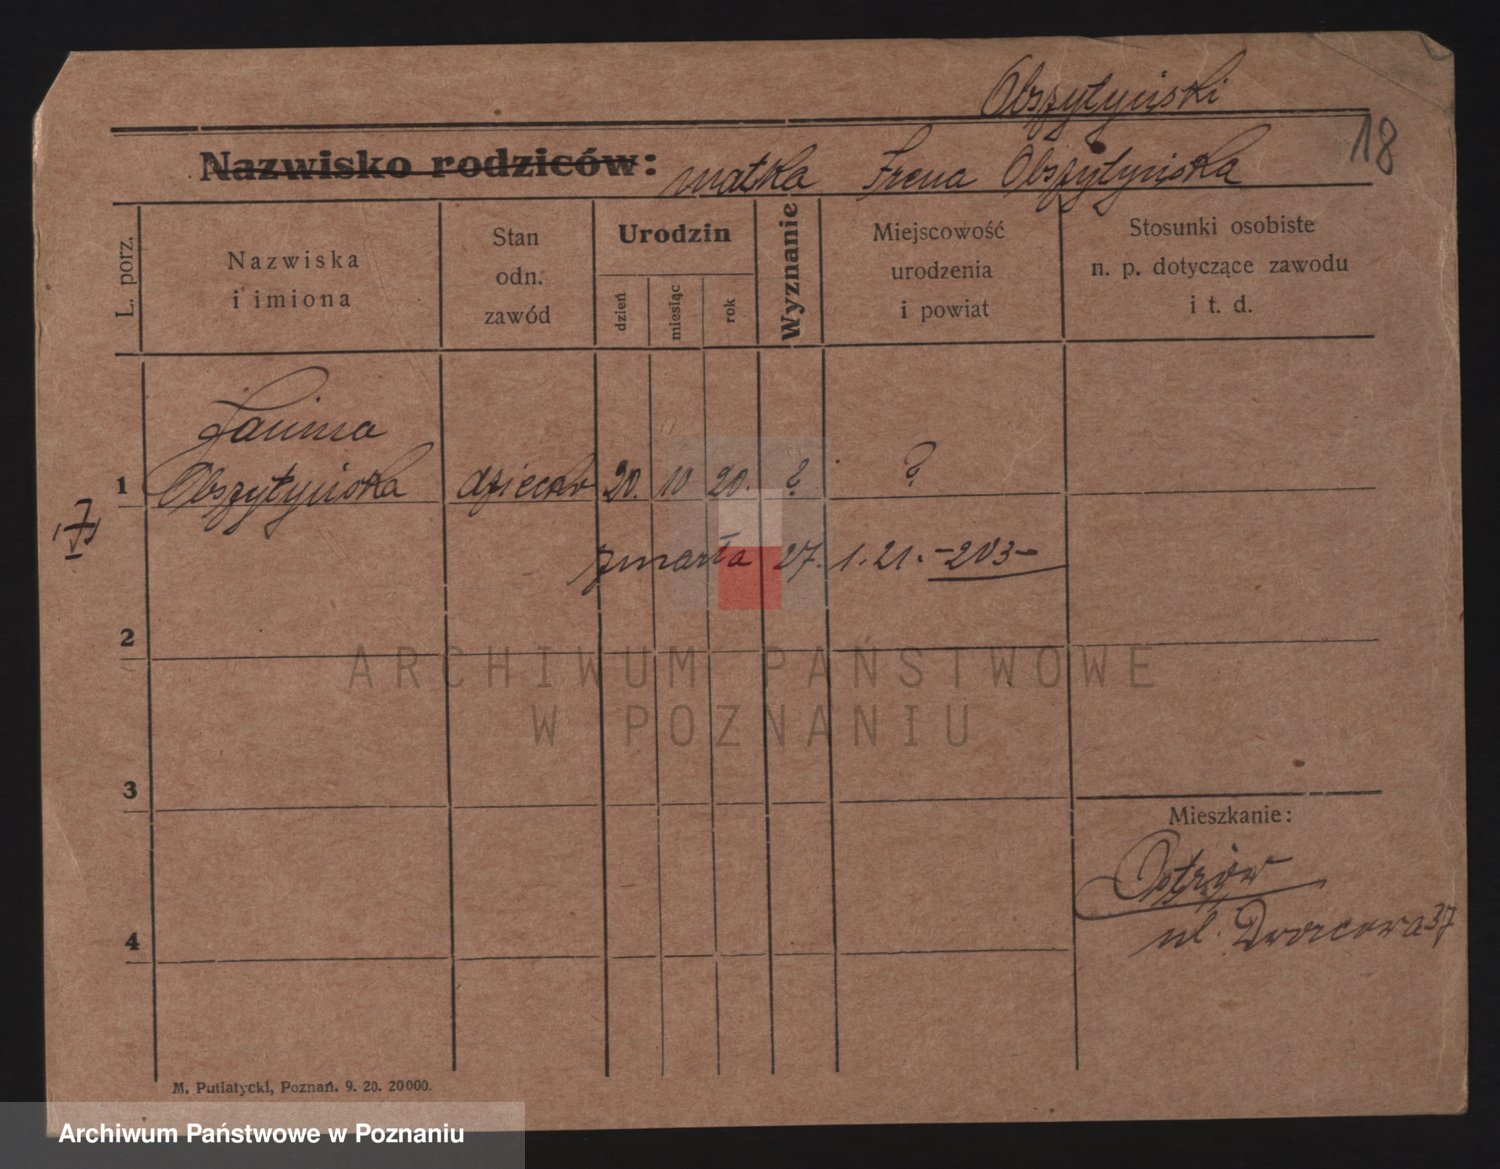 Obszytyński
18
Nazwisko rodziców: matka Irena Obszytyńska
L. porz.
Nazwiska
i imiona
Stan
odn.
zawód
Urodzin
dzień
miesiąc
rok
Wyznanie
Miejscowość
urodzenia
i powiat
Stosunki osobiste
n. p. dotyczące zawodu
i t. d.
Janina
1 Obszytyńska dziecko 20. 10 20. ? ?
zmarła 27. 1. 21. -203-
2
3
4
Mieszkanie:
Ostrów
ul. Dworcowa 37
M. Putiatycki, Poznań. 9. 20. 20000.
ARCHIWUM PAŃSTWOWE
W POZNANIU
Archiwum Państwowe w Poznaniu